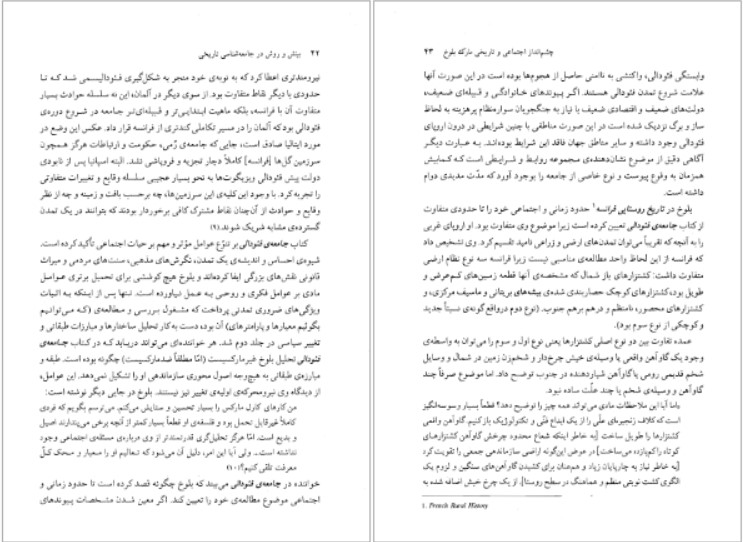 ۴۲ بینش و روش در جامعه‌شناسی تاریخی
نیرومندتری اعطا کرد که به نوبه‌ی خود منجر به شکل‌گیری فئودالیسمی شد که تا
حدودی با دیگر نقاط متفاوت بود. از سوی دیگر در آلمان، این نه سلسله حوادث بسیار
متفاوت آن با فرانسه، بلکه ماهیت ابتدایی‌تر و قبیله‌ای‌تر جامعه در شروع دوره‌ی
فئودالی بود که آلمان را در مسیر تکاملی کندتری از فرانسه قرار داد. عکس این وضع در
مورد ایتالیا صادق است، جایی که جامعه‌ی رُمی، حکومت و ارتباطات هرگز همچون
سرزمین گل‌ها [فرانسه] کاملاً دچار تجزیه و فروپاشی نشد. البته اسپانیا پس از نابودی
دولت پیش فئودالی ویزیگوت‌ها به نحو بسیار عجیبی سلسله وقایع و تغییرات متفاوتی
را تجربه کرد. با وجود این کلیه‌ی این سرزمین‌ها، چه برحسب بافت و زمینه و چه از نظر
وقایع و حوادث از آن‌چنان نقاط مشترک کافی برخوردار بودند که بتوانند در یک تمدن
گسترده‌ی مشابه شریک شوند.(۹)
کتاب جامعه‌ی فئودالی بر تنوّع عوامل مؤثر و مهم بر حیات اجتماعی تأکید کرده است.
شیوه‌ی احساس و اندیشه‌ی یک تمدن، نگرش‌های مذهبی، سنت‌های مردمی و میراث
قانونی نقش‌های بزرگی ایفا کرده‌اند و بلوخ هیچ کوششی برای تحمیل برتری عوامل
مادی بر عوامل فکری و روحی به عمل نیاورده است. تنها پس از اینکه به اثبات
ویژگی‌های ضروری تمدنی پرداخت که مشغول بررسی و مطالعه‌ی (که می‌توانیم
بگوئیم معیارها و پارامترهای) آن بوده دست به کار تحلیل ساختارها و مبارزات طبقاتی و
تغییر سیاسی در جلد دوم شد. هر خواننده‌ای می‌تواند دریابد که در کتاب جامعه‌ی
فئودالی تحلیل بلوخ غیرمارکسیست (امّا مطلقاً ضدمارکسیست) چگونه بوده است. طبقه و
مبارزه‌ی طبقاتی به هیچ‌وجه اصول محوری سازماندهی او را تشکیل نمی‌دهد. این عوامل،
از دیدگاه وی نیرومحرکه‌ی اولیه‌ی تغییر نیز نیستند. بلوخ در جایی دیگر نوشته است:
من کارهای کارل مارکس را بسیار تحسین و ستایش می‌کنم. می‌ترسم بگویم که فردی
کاملاً غیرقابل تحمل بود و فلسفه‌ی او قطعاً بسیار کمتر از آنچه برخی می‌پندارند اصیل
و بدیع است. امّا هرگز تحلیل‌گری قدرتمندتر از وی درباره‌ی مسئله‌ی اجتماعی وجود
نداشته است... ولی آیا این امر، دلیل آن می‌شود که تعالیم او را معیار و محک کلّ
معرفت تلقی کنیم؟(۱۰)
خواننده در جامعه‌ی فئودالی می‌بیند که بلوخ چگونه قصد کرده است تا حدود زمانی و
اجتماعی موضوع مطالعه‌ی خود را تعیین کند. اگر معین شدن مشخصات پیوندهای
چشم‌انداز اجتماعی و تاریخی مارک بلوخ ۴۳
وابستگی فئودالی، واکنشی به ناامنی حاصل از هجوم‌ها بوده است در این صورت آنها
علامت شروع تمدن فئودالی هستند. اگر پیوندهای خانوادگی و قبیله‌ای ضعیف،
دولت‌های ضعیف و اقتصادی ضعیف با نیاز به جنگجویان سواره‌نظام پرهزینه به لحاظ
ساز و برگ نزدیک شده است در این صورت مناطقی با چنین شرایطی در درون اروپای
فئودالی وجود داشته و سایر مناطق جهان فاقد این شرایط بوده‌اند. به عبارت دیگر
آگاهی دقیق از موضوع نشان‌دهنده‌ی مجموعه روابط و شرایطی است که کمابیش
همزمان به وقوع پیوست و نوع خاصی از جامعه را بوجود آورد که مدّت مدیدی دوام
داشته است.
بلوخ در تاریخ روستایی فرانسه¹ حدود زمانی و اجتماعی خود را تا حدودی متفاوت
از کتاب جامعه‌ی فئودالی تعیین کرده است زیرا موضوع وی متفاوت بود. او اروپای غربی
را به آنچه که تقریباً می‌توان تمدن‌های ارضی و زراعی نامید تقسیم کرد. وی تشخیص داد
که فرانسه از این لحاظ واحد مطالعه‌ی مناسبی نیست زیرا فرانسه سه نوع نظام ارضی
متفاوت داشت: کشتزارهای باز شمال که مشخصه‌ی آنها قطعه زمین‌های کم‌عرض و
طویل بود، کشتزارهای کوچک حصاربندی شده‌ی بیشه‌های بریتانی و ماسیف مرکزی، و
کشتزارهای محصور، نامنظم و درهم برهم جنوب. (نوع دوم درواقع گونه‌ی نسبتاً جدید
و کوچکی از نوع سوم بود).
عمده تفاوت بین دو نوع اصلی کشتزارها یعنی نوع اول و سوم را می‌توان به واسطه‌ی
وجود یک گاوآهن واقعی یا وسیله‌ی خیش چرخ‌دار و شخم‌زن زمین در شمال و وسایل
شخم قدیمی رومی یا گاوآهن شیاردهنده در جنوب توضیح داد. اما موضوع صرفاً چند
گاوآهن و وسیله‌ی شخم یا چند علّت ساده نبود.
«اما آیا این ملاحظات مادی می‌تواند همه چیز را توضیح دهد؟ قطعاً بسیار وسوسه‌انگیز
است که کلاف زنجیره‌ای علّی را از یک ابداع فنّی و تکنولوژیک باز کنیم. گاوآهن واقعی
کشتزارها را طویل ساخت [به خاطر اینکه شعاع محدود چرخش گاوآهن کشتزارهای
کوتاه را کم‌بازده می‌ساخت] در عوض این‌گونه اراضی سازماندهی جمعی را تقویت کرد
[به خاطر نیاز به چارپایان زیاد و همزمان برای کشیدن گاوآهن‌های سنگین و لزوم یک
الگوی کشت نوبتی منظم و هماهنگ در سطح روستا]. از یک چرخ خیش اضافه شده به
1. French Rural History